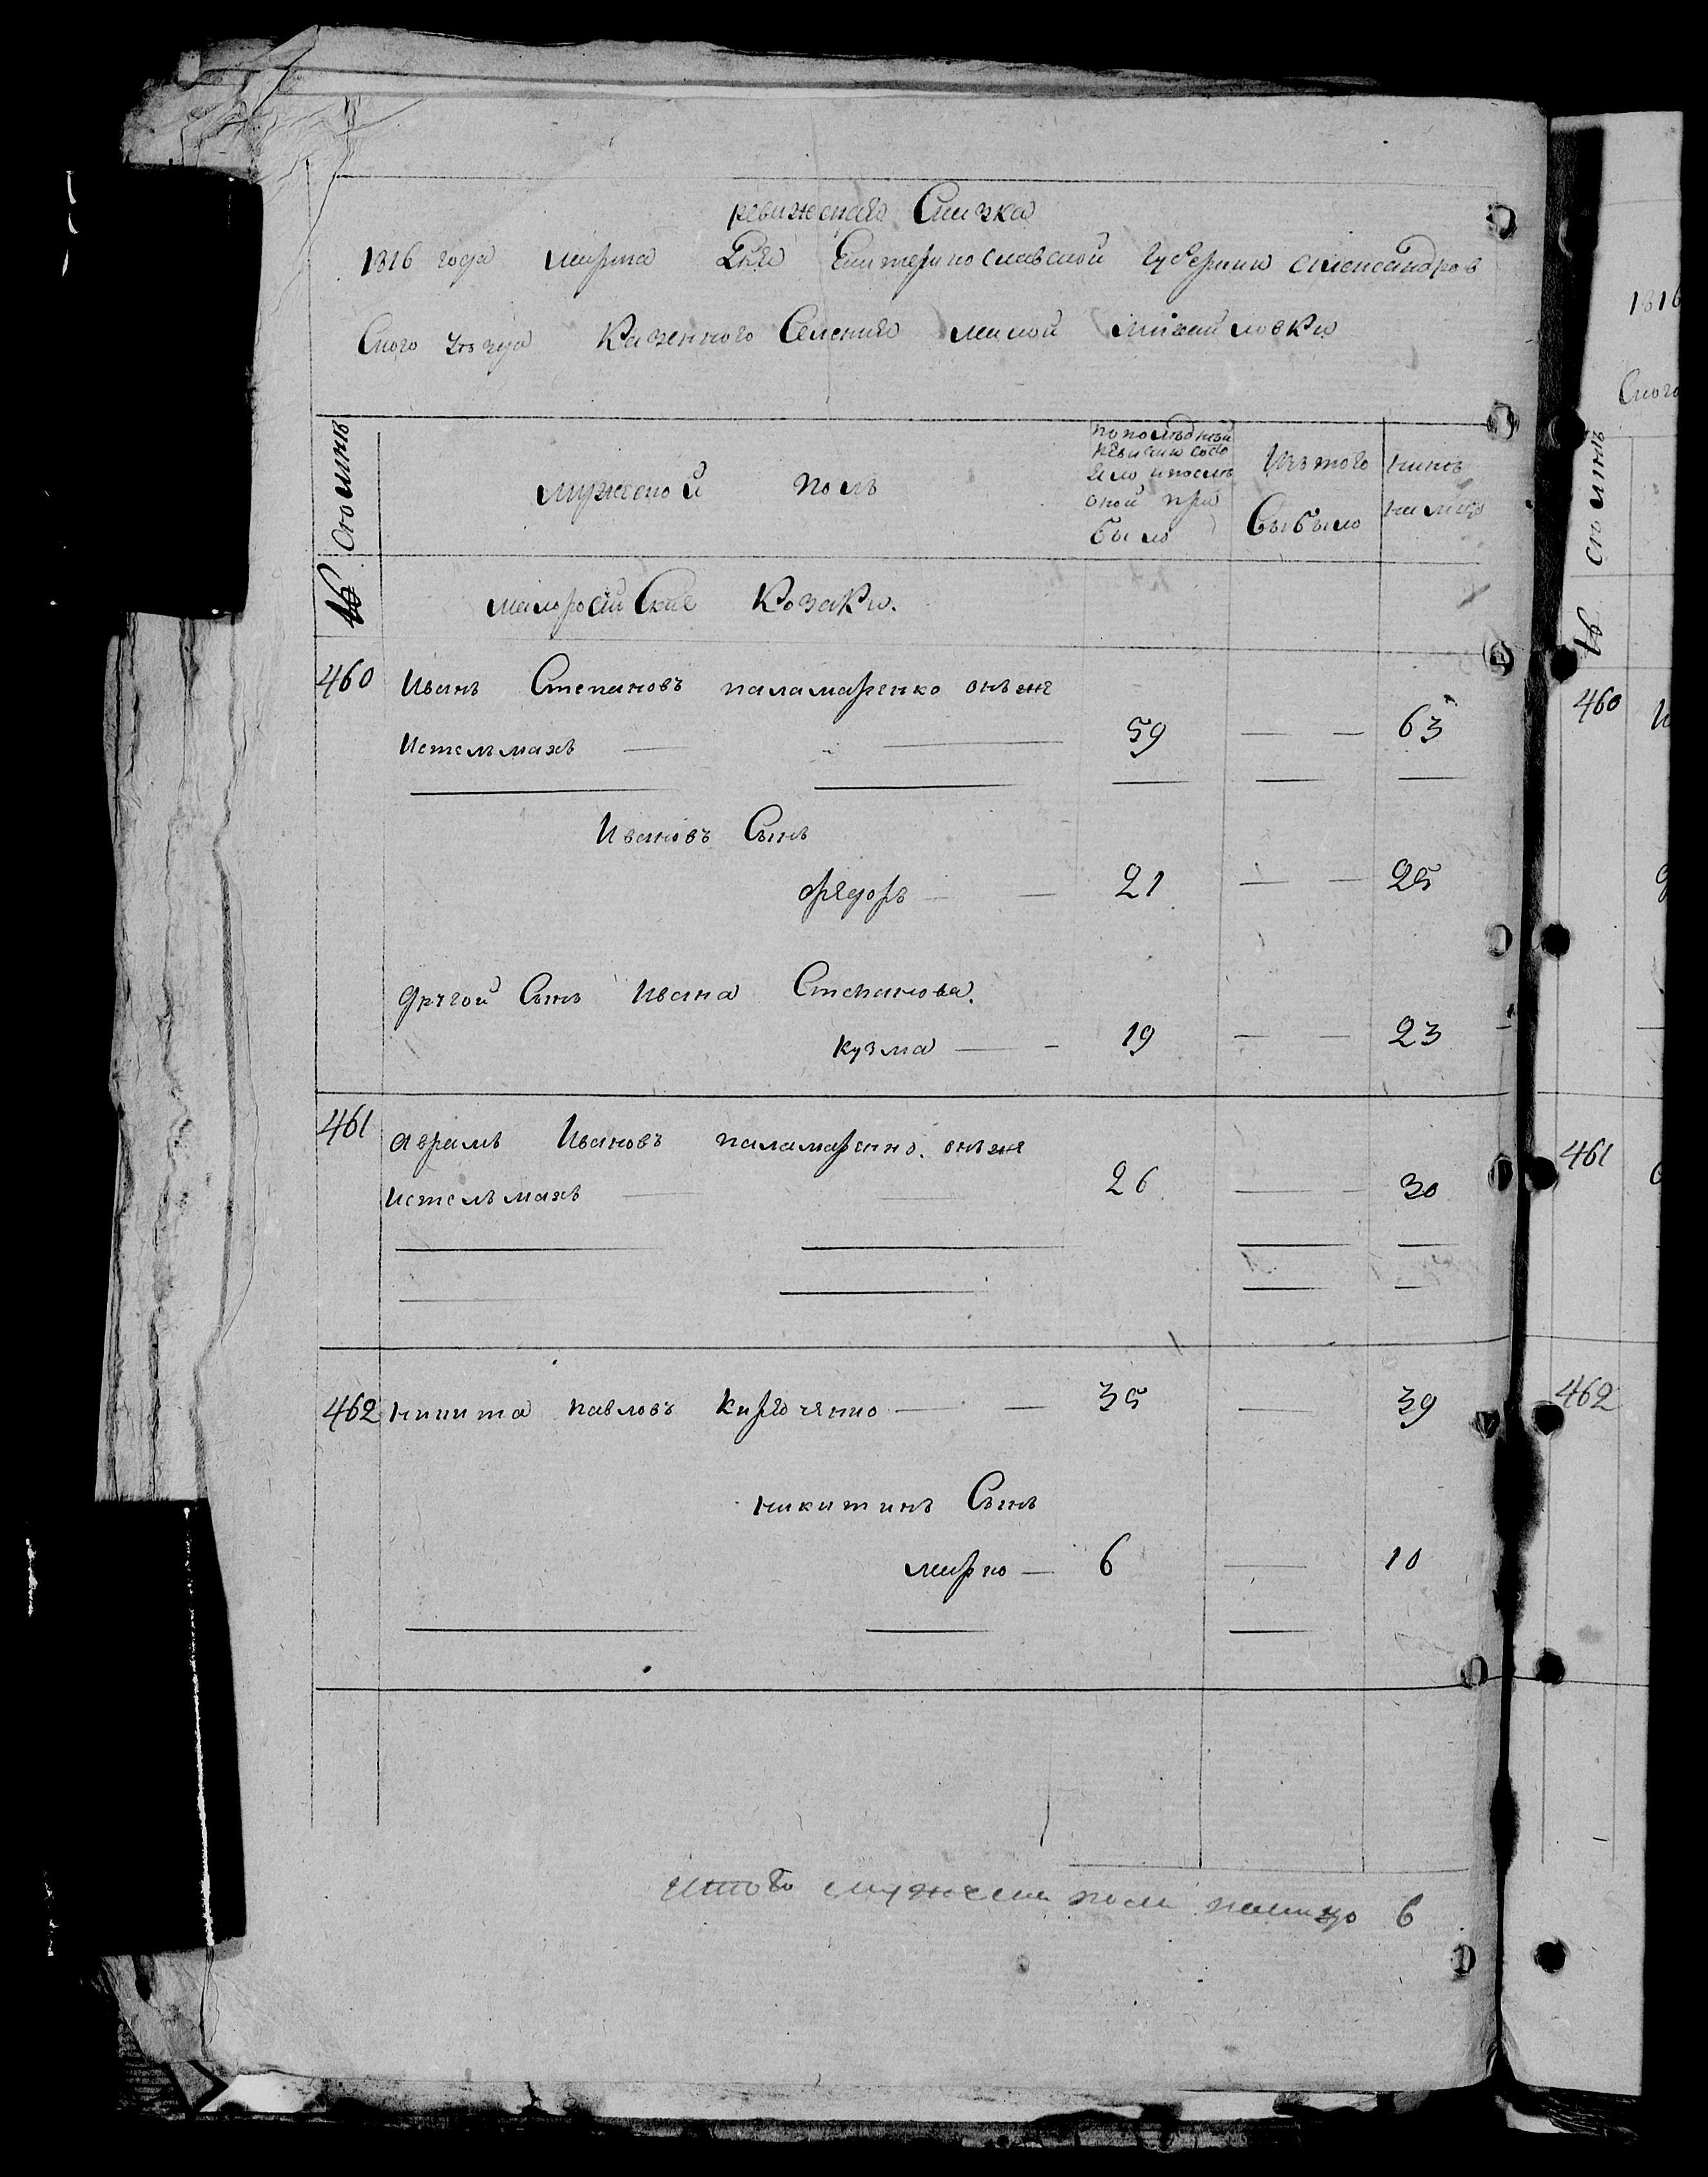 ревижская Скизка
1816 года марта Дня Екатеринославской Губернии Александров
Ского уезда Казенного Селения малой михайловки
Осминъ
мужеской полъ
по последней
ревизии состо
яло и после
оной при
было
Изъ того
Выбыло
ныне
на лицо
малоросийские Козаки.
460 Иванъ Степановъ паламаренко онъ же
истельмахъ — — 59 — — 63
Ивановъ Сынъ
фядоръ — — 21 — — 25
другой Сынъ ивана Степанова.
кузма — - 19 — — 23
461 аврамъ Ивановъ паламаренко. онъ же
истельмахъ — — 26 — - 30
462 никита павловъ кирюченко — — 35 — 39
никитинъ Сынъ
марко — 6 — 10
Итого мужеска пола налицо 6
1816
Ского
460
461
462